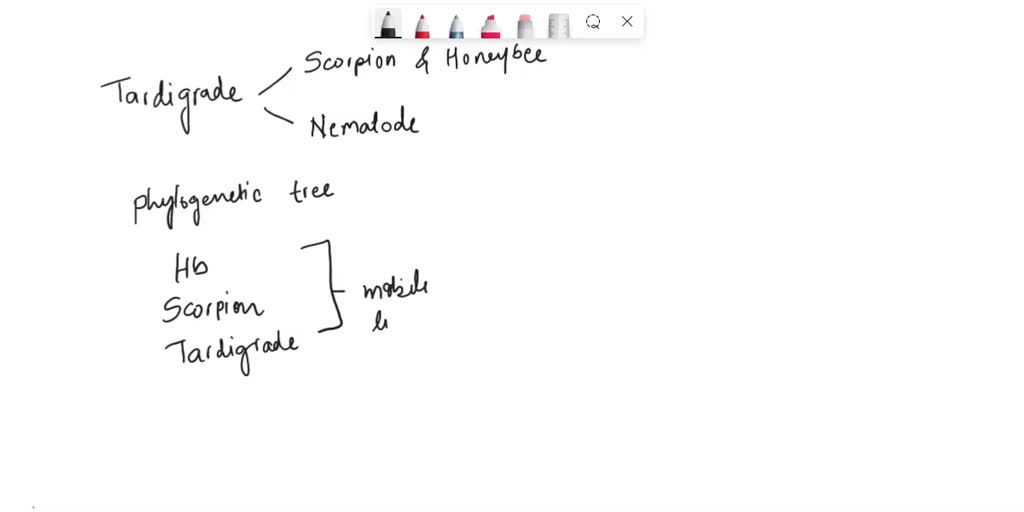 Scorpion & Honeybee
Tardigrade
Nematode
Phylogenetic tree
Hb
Scorpion
mobile
Tardigrade